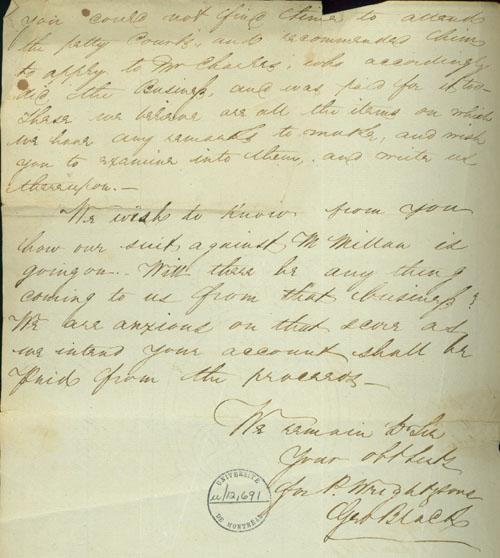 you could not find time to attend
the petty Courts, and recommended him
to apply to Mr Charles, who accordingly
did the business, and was paid for it too
These we believe are all the items on which
we have any remarks to make, and wish
you to examine into them, and write us
thereupon.—
We wish to know from you
how our suit against McMillan is
going on. Will there be any thing
coming to us from that business?
We are anxious on that score as
we intend your account shall be
paid from the proceeds—
We remain Dr Sir
Your obt Servts
for P. Wright & Sons
Geo Black
UNIVERSITÉ
u/12,691
DE MONTRÉAL